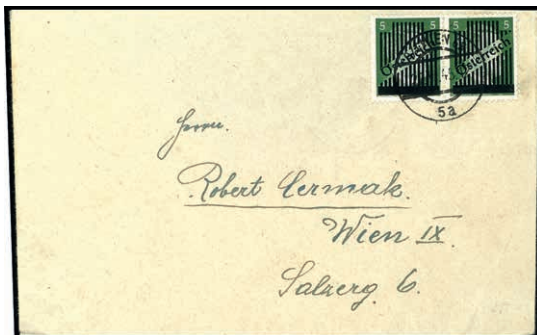 5 5
Österreich Österreich
WIEN
45
5a
Herrn.
Robert Cermak.
Wien IX.
Salzerg. 6.